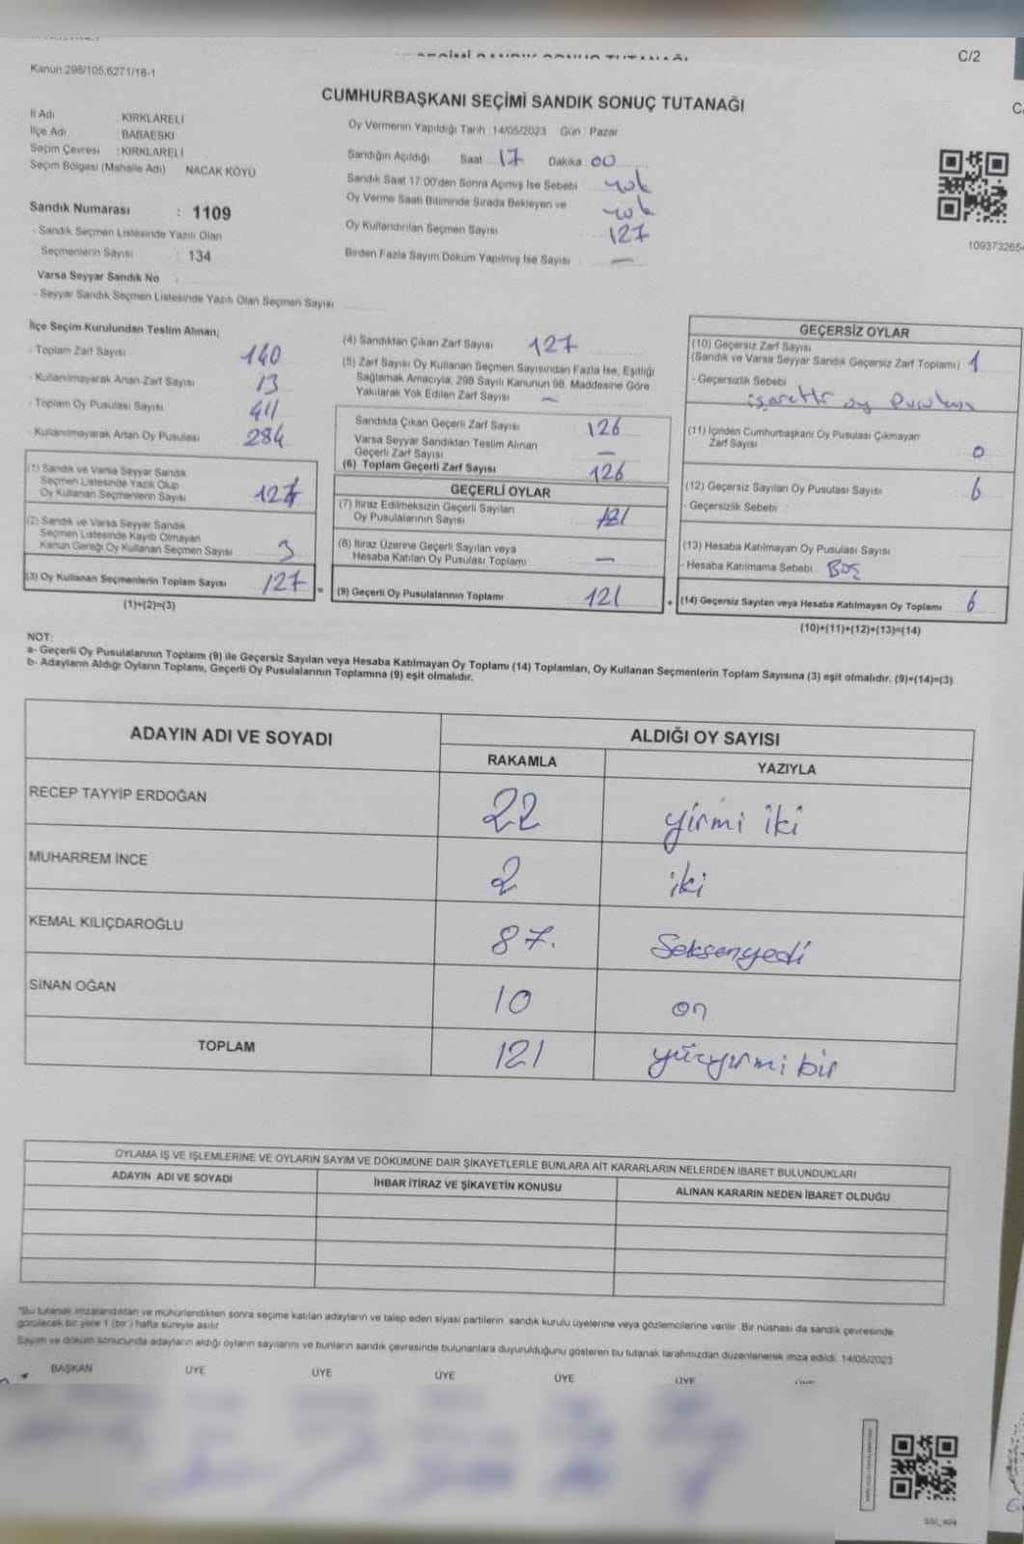 C/2
Kanun:298/105,6271/18-1
CUMHURBAŞKANI SEÇİMİ SANDIK SONUÇ TUTANAĞI
İl Adı KIRKLARELİ
İlçe Adı BABAESKİ
Seçim Çevresi : KIRKLARELİ
Seçim Bölgesi (Mahalle Adı) NACAK KÖYÜ
Sandık Numarası : 1109
- Sandık Seçmen Listesinde Yazılı Olan
Seçmenlerin Sayısı : 134
Varsa Seyyar Sandık No
- Seyyar Sandık Seçmen Listesinde Yazılı Olan Seçmen Sayısı
Oy Vermenin Yapıldığı Tarih : 14/05/2023 Gün : Pazar
Sandığın Açıldığı Saat 17 Dakika : 00
Sandık Saat 17:00'den Sonra Açılmış İse Sebebi yok
Oy Verme Saati Bitiminde Sırada Bekleyen ve yok
Oy Kullandırılan Seçmen Sayısı 127
Birden Fazla Sayım Döküm Yapılmış İse Sayısı —
İlçe Seçim Kurulundan Teslim Alınan;
- Toplam Zarf Sayısı 140
- Kullanılmayarak Artan Zarf Sayısı 13
- Toplam Oy Pusulası Sayısı 411
- Kullanılmayarak Artan Oy Pusulası 284
(1) Sandık ve Varsa Seyyar Sandık
Seçmen Listesinde Yazılı Olup
Oy Kullanan Seçmenlerin Sayısı
(2) Sandık ve Varsa Seyyar Sandık
Seçmen Listesinde Kayıtlı Olmayan
Kanun Gereği Oy Kullanan Seçmen Sayısı 3
(3) Oy Kullanan Seçmenlerin Toplam Sayısı 127
(1)+(2)=(3)
(4) Sandıktan Çıkan Zarf Sayısı 127
(5) Zarf Sayısı Oy Kullanan Seçmen Sayısından Fazla İse, Eşitliği
Sağlamak Amacıyla, 298 Sayılı Kanunun 98. Maddesine Göre
Yakılarak Yok Edilen Zarf Sayısı —
Sandıkta Çıkan Geçerli Zarf Sayısı 126
Varsa Seyyar Sandıktan Teslim Alınan
Geçerli Zarf Sayısı —
(6) Toplam Geçerli Zarf Sayısı 126
GEÇERLİ OYLAR
(7) İtiraz Edilmeksizin Geçerli Sayılan
Oy Pusulalarının Sayısı
(8) İtiraz Üzerine Geçerli Sayılan veya
Hesaba Katılan Oy Pusulası Toplamı —
(9) Geçerli Oy Pusulalarının Toplamı 121
GEÇERSİZ OYLAR
(10) Geçersiz Zarf Sayısı
(Sandık ve Varsa Seyyar Sandık Geçersiz Zarf Toplamı) 1
- Geçersizlik Sebebi
oy
(11) İçinden Cumhurbaşkanı Oy Pusulası Çıkmayan
Zarf Sayısı 0
(12) Geçersiz Sayılan Oy Pusulası Sayısı 6
- Geçersizlik Sebebi
(13) Hesaba Katılmayan Oy Pusulası Sayısı
- Hesaba Katılmama Sebebi Boş
(14) Geçersiz Sayılan veya Hesaba Katılmayan Oy Toplamı 6
(10)+(11)+(12)+(13)=(14)
NOT:
a- Geçerli Oy Pusulalarının Toplamı (9) ile Geçersiz Sayılan veya Hesaba Katılmayan Oy Toplamı (14) Toplamları, Oy Kullanan Seçmenlerin Toplam Sayısına (3) eşit olmalıdır. (9)+(14)=(3)
b- Adayların Aldığı Oyların Toplamı, Geçerli Oy Pusulalarının Toplamına (9) eşit olmalıdır.
ADAYIN ADI VE SOYADI ALDIĞI OY SAYISI
RAKAMLA YAZIYLA
RECEP TAYYİP ERDOĞAN 22 yirmi iki
MUHARREM İNCE 2 iki
KEMAL KILIÇDAROĞLU 87. Seksenyedi
SİNAN OĞAN 10 on
TOPLAM 121 yüzyirmi bir
OYLAMA İŞ VE İŞLEMLERİNE VE OYLARIN SAYIM VE DÖKÜMÜNE DAİR ŞİKAYETLERLE BUNLARA AİT KARARLARIN NELERDEN İBARET BULUNDUKLARI
ADAYIN ADI VE SOYADI İHBAR İTİRAZ VE ŞİKAYETİN KONUSU ALINAN KARARIN NEDEN İBARET OLDUĞU
*Bu tutanak imzalandıktan ve mühürlendikten sonra seçime katılan adayların ve talep eden siyasi partilerin sandık kurulu üyelerine veya gözlemcilerine verilir. Bir nüshası da sandık çevresinde
görülecek bir yere 1 (bir) hafta süreyle asılır.
Sayım ve döküm sonucunda adayların aldığı oyların sayılarını ve bunların sandık çevresinde bulunanlara duyurulduğunu gösteren bu tutanak tarafımızdan düzenlenerek imza edildi. 14/05/2023
BAŞKAN ÜYE ÜYE ÜYE ÜYE ÜYE